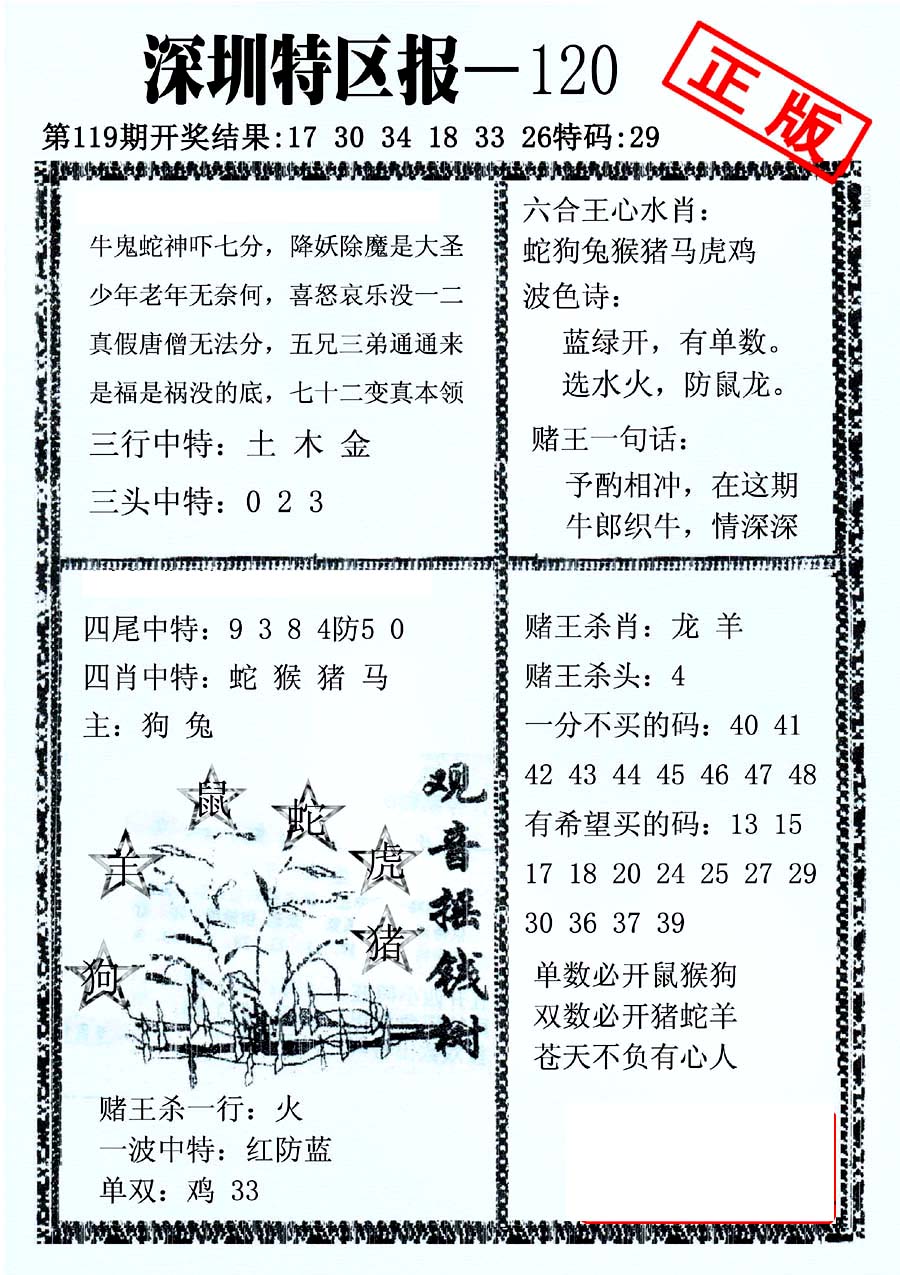 深圳特区报—120
正版
第119期开奖结果:17 30 34 18 33 26特码:29
牛鬼蛇神吓七分，降妖除魔是大圣
少年老年无奈何，喜怒哀乐没一二
真假唐僧无法分，五兄三弟通通来
是福是祸没的底，七十二变真本领
三行中特：土 木 金
三头中特：0 2 3
六合王心水肖：
蛇狗兔猴猪马虎鸡
波色诗：
蓝绿开，有单数。
选水火，防鼠龙。
赌王一句话：
予酌相冲，在这期
牛郎织牛，情深深
四尾中特：9 3 8 4防5 0
四肖中特：蛇 猴 猪 马
主：狗 兔
鼠
蛇
羊
虎
猪
狗
观音摇钱树
赌王杀一行：火
一波中特：红防蓝
单双：鸡 33
赌王杀肖：龙 羊
赌王杀头：4
一分不买的码：40 41
42 43 44 45 46 47 48
有希望买的码：13 15
17 18 20 24 25 27 29
30 36 37 39
单数必开鼠猴狗
双数必开猪蛇羊
苍天不负有心人